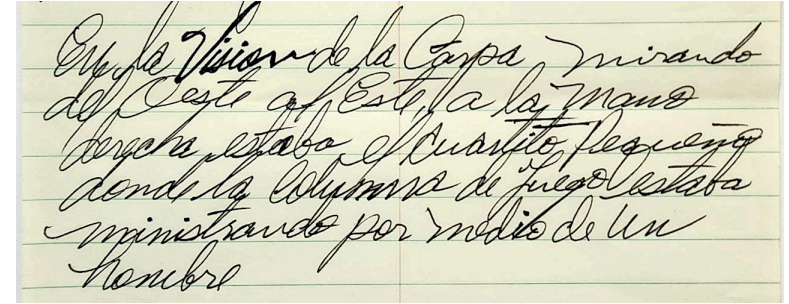 En la Vision de la Carpa mirando
del Oeste al Este, a la mano
derecha estaba el cuartito Pequeño
donde la Columna de fuego estaba
ministrando por medio de Un
hombre